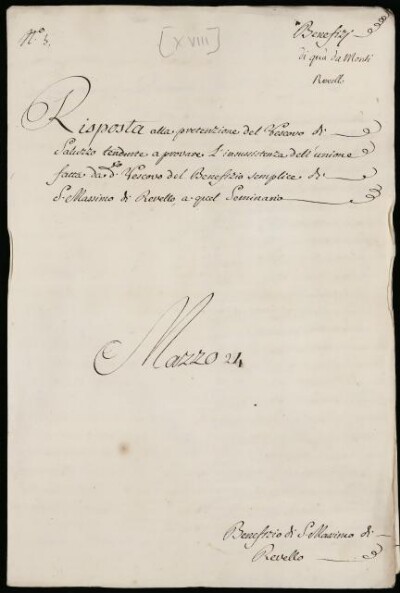 N.° 3.
[XVIII]
Benefizj
di quà da Monti
Revello
Risposta alla pretenzione del Vescovo di
Saluzzo tendente a provare l'insussistenza dell'unione
fatta da d.° Vescovo del Benefizio semplice di
S. Massimo di Revello, a quel Seminario
Mazzo 24
Benefizio di S. Massimo di
Revello